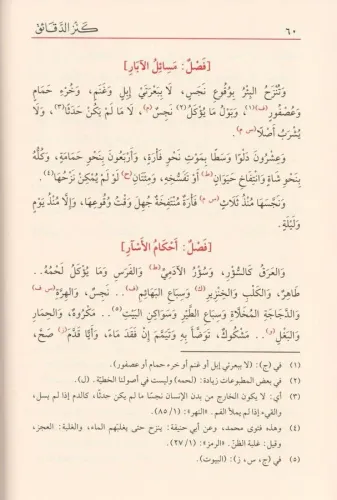 ٦٠ كنز الدقائق
[فَصْلٌ: مَسَائِلُ الآبَارِ]
وَتُنْزَحُ الْبِئْرُ بِوُقُوعِ نَجَسٍ، لَا بِبَعْرَتَيْ إِبِلٍ وَغَنَمٍ، وَخُرْءِ حَمَامٍ
وَعُصْفُورٍ (ف)(١)، وَبَوْلُ مَا يُؤْكَلُ(٢) نَجِسٌ(م)، لَا مَا لَمْ يَكُنْ حَدَثًا(٣)، وَلَا
يُشْرَبُ أَصْلًا(س م).
وَعِشْرُونَ دَلْوًا وَسَطًا بِمَوْتِ نَحْوِ فَأْرَةٍ، وَأَرْبَعُونَ بِنَحْوِ حَمَامَةٍ، وَكُلُّهُ
بِنَحْوِ شَاةٍ وَانْتِفَاخِ حَيَوَانٍ(ط) أَوْ تَفَسُّخِهِ، وَمِئَتَانِ(ح) لَوْ لَمْ يُمْكِنْ نَزْحُهَا(٤).
وَنَجَّسَهَا مُنْذُ ثَلَاثٍ(س م) فَأْرَةٌ مُنْتَفِخَةٌ جُهِلَ وَقْتُ وُقُوعِهَا، وَإِلَّا مُنْذُ يَوْمٍ
وَلَيْلَةٍ.
[فَصْلٌ: أَحْكَامُ الأَسْآرِ]
وَالْعَرَقُ كَالسُّؤْرِ، وَسُؤْرُ الآدَمِيِّ(ط) وَالْفَرَسِ وَمَا يُؤْكَلُ لَحْمُهُ..
طَاهِرٌ، وَالْكَلْبِ وَالْخِنْزِيرِ(ك) وَسِبَاعِ الْبَهَائِمِ(ف).. نَجِسٌ، وَالْهِرَّةِ(س ف)
وَالدَّجَاجَةِ الْمُخَلَّاةِ وَسِبَاعِ الطَّيْرِ وَسَوَاكِنِ الْبَيْتِ(٥).. مَكْرُوهٌ، وَالْحِمَارِ
وَالْبَغْلِ(و).. مَشْكُوكٌ، تَوَضَّأَ بِهِ وَتَيَمَّمَ إِنْ فَقَدَ مَاءً، وَأَيًّا قَدَّمَ(ز) صَحَّ،
(١) في (ج): (لا ببعرتي إبل أو غنم أو خرء حمام أو عصفور).
(٢) في بعض المطبوعات زيادة: (لحمه) وليست في أصولنا الخطيَّة. (ل).
(٣) أي: لا يكون الخارج من بدن الإنسان نجسًا ما لم يكن حدثًا، كالدم إذا لم يسل،
والقيء إذا لم يملأ الفم. «النهر»: (١/ ٨٥).
(٤) وهذه فتوى محمد، وعن أبي حنيفة: ينزح حتى يغلبهم الماء، والغلبة: العجز،
وقيل: غلبة الظنّ. «الرمز»: (١/ ٢٧).
(٥) في (ج، س، ز): (البيوت).